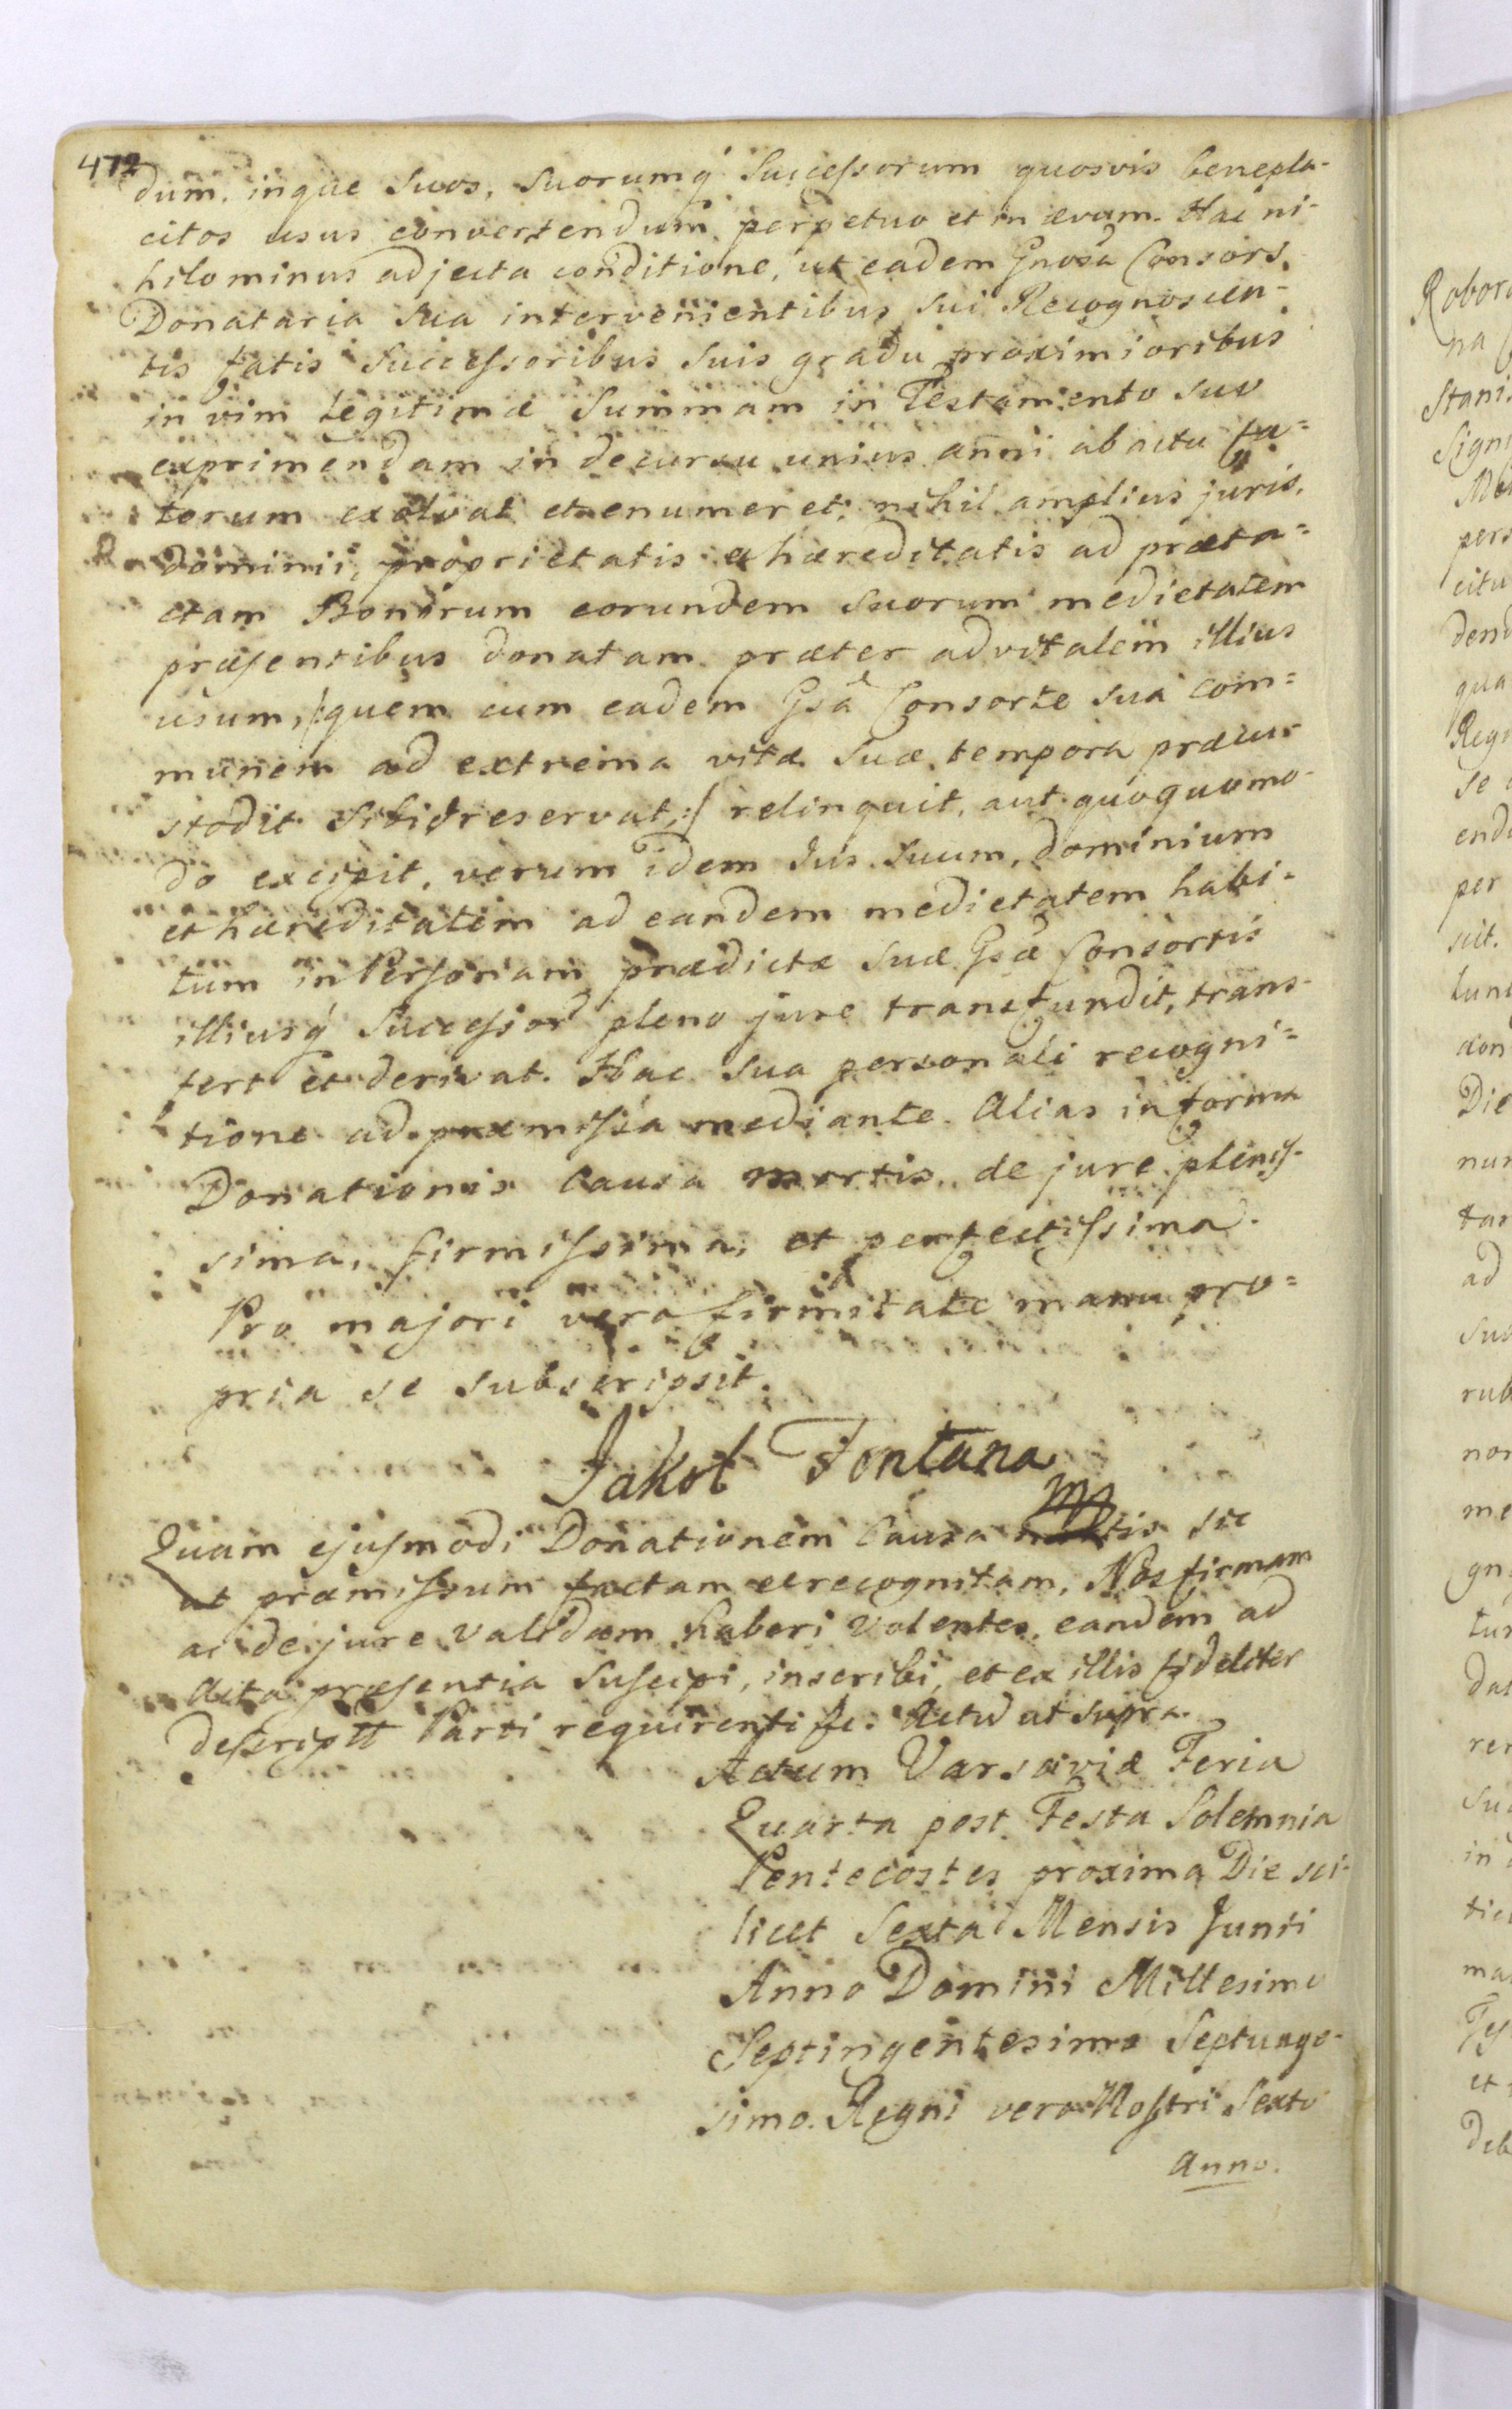 472
dum, inque suos, suorumq́ Successorum quosvis benepla-
citos usus convertendum perpetuo et in ævum. Hac ni-
hilominus adjecta conditione, ut eadem Gnosa Consors
Donataria sua intervenientibus sui Recognoscen-
tis fatis Successoribus suis gradu proximioribus
in vim legitimæ Summam in Testamento suo
exprimendam in decursu unius anni ab actu fa=
torum exolvat et enumeret; nihil amplius juris,
dominii, proprietatis et hæreditatis ad præta=
ctam Bonorum eorundem suorum medietatem
præsentibus donatam præter advitalem illius
usum, /:quem cum eadem Gsa Consorte sua com=
munem ad extrema vitæ suæ tempora præcu-
stodit sibi reservat,:/ relinquit, aut quoquomo-
do excipit, verum idem Jus suum, dominium
et hæreditatem ad eandem medietatem habi-
tum in Personam prædictæ suæ Gsæ Consortis
illiusq́ Successor pleno jure transfundit, trans-
fert et derivat. Hac sua personali recogni=
tione ad præmissa mediante. Alias in forma
Donationis Causa mortis de jure plenis-
sima, firmissima, et perfectissima.
Pro majori vero firmitate manu pro=
pria se subscripsit.
Jakob Fontana
mp
Quam ejusmodi Donationem Causa mortis sic
ut præmissum factam et recognitam, Nos firmam
ac de jure validam haberi volentes, eandem ad
Acta præsentia suscipi, inscribi, et ex illis fideliter
descriptt Parti requirenti Actu ut supra.
Actum Varsaviæ Feria
Quarta post Festa Solemnia
Pentecostes proxima Die sci-
licet Sexta Mensis Junii
Anno Domini Millesimo
Septingentesimo Septuage-
simo. Regni vero Nostri Sexto
Anno.
Robora
na
Stani
Sign
pers
citu
dend
qua
Regn
se
end
per
scit.
tunc
Die
nun
tar
ad
sua
rub
non
me
gn
tur
dat
rer
sua
in
tio
ma
et
deb